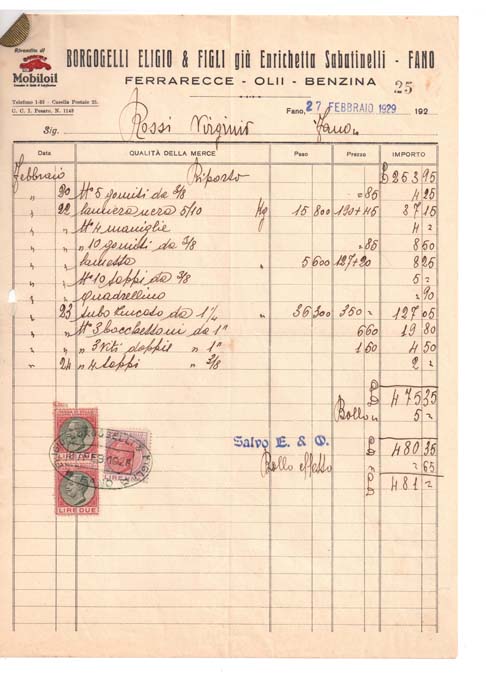 Rivendita di
Mobiloil
BORGOGELLI ELIGIO & FIGLI già Enrichetta Sabatinelli - FANO
FERRARECCE - OLII - BENZINA
25
Telefono 1-23 - Casella Postale 25.
C. C. I. Pesaro, N. 1149
Fano, 27 FEBBRAIO 1929 192
Sig. Rossi Virginio Fano
Data QUALITÀ DELLA MERCE Peso Prezzo IMPORTO
Febbraio Riporto £ 253 95
" 20 N° 5 gomiti da 3/8 " 85 4 25
" 22 lamiera nera 5/10 Kg 15 800 190+45 37 15
" " N° 4 maniglie 4 "
" " " 10 gomiti da 3/8 " 85 8 50
" " lametta " 5 600 127+20 8 25
" " N° 10 tappi da 3/8 5 "
" " Quadrellino " 90
" 23 tubo zincato da 1 1/4 " 36 300 350 " 127 05
" " N° 3 bocchettoni da 1" 6 60 19 80
" " " 3 doppie " 1" 1 50 4 50
" 24 " 4 tappi " 3/8 2 "
475 35
Bollo " 5 "
Salvo E. & O. 480 35
Bollo effetto " 65
481 "
LIRE DUE
LIRE DUE